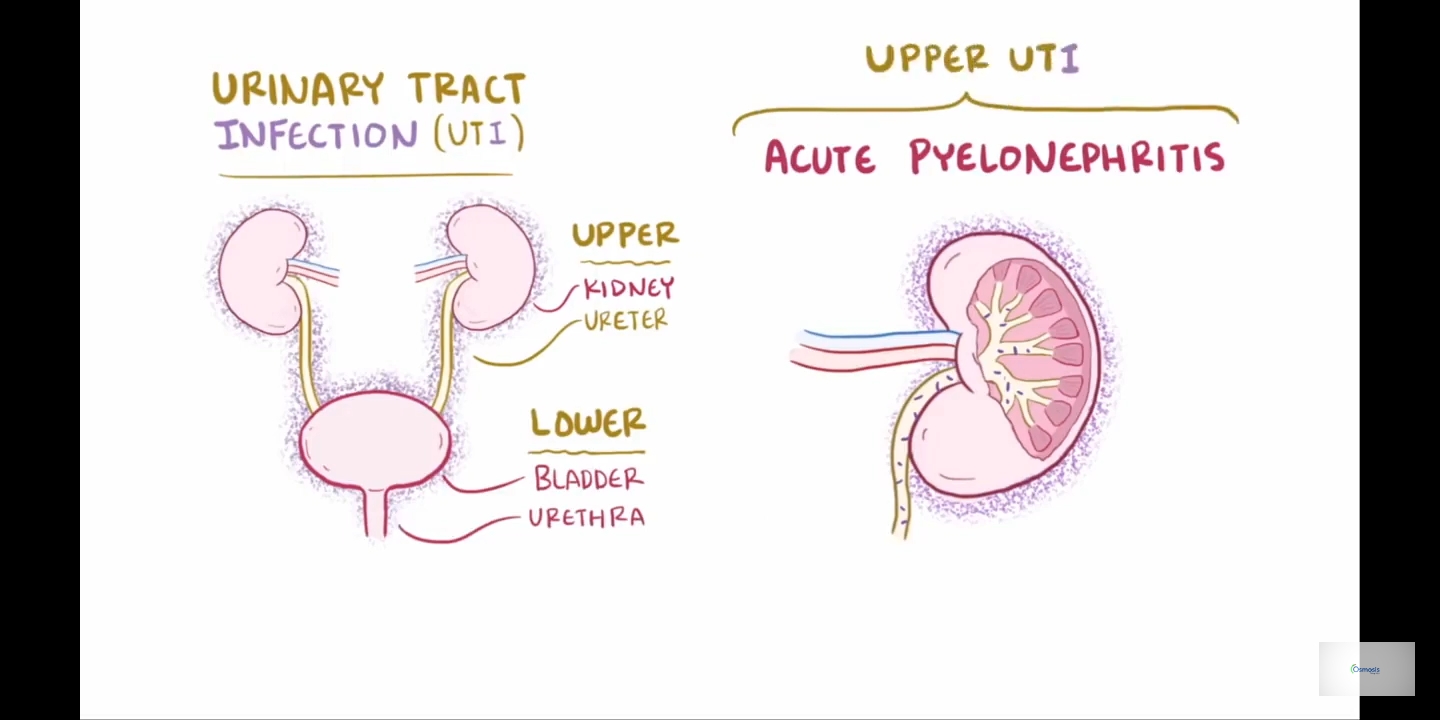 URINARY TRACT
INFECTION (UTI)
UPPER
KIDNEY
URETER
LOWER
BLADDER
URETHRA
UPPER UTI
ACUTE PYELONEPHRITIS
Osmosis